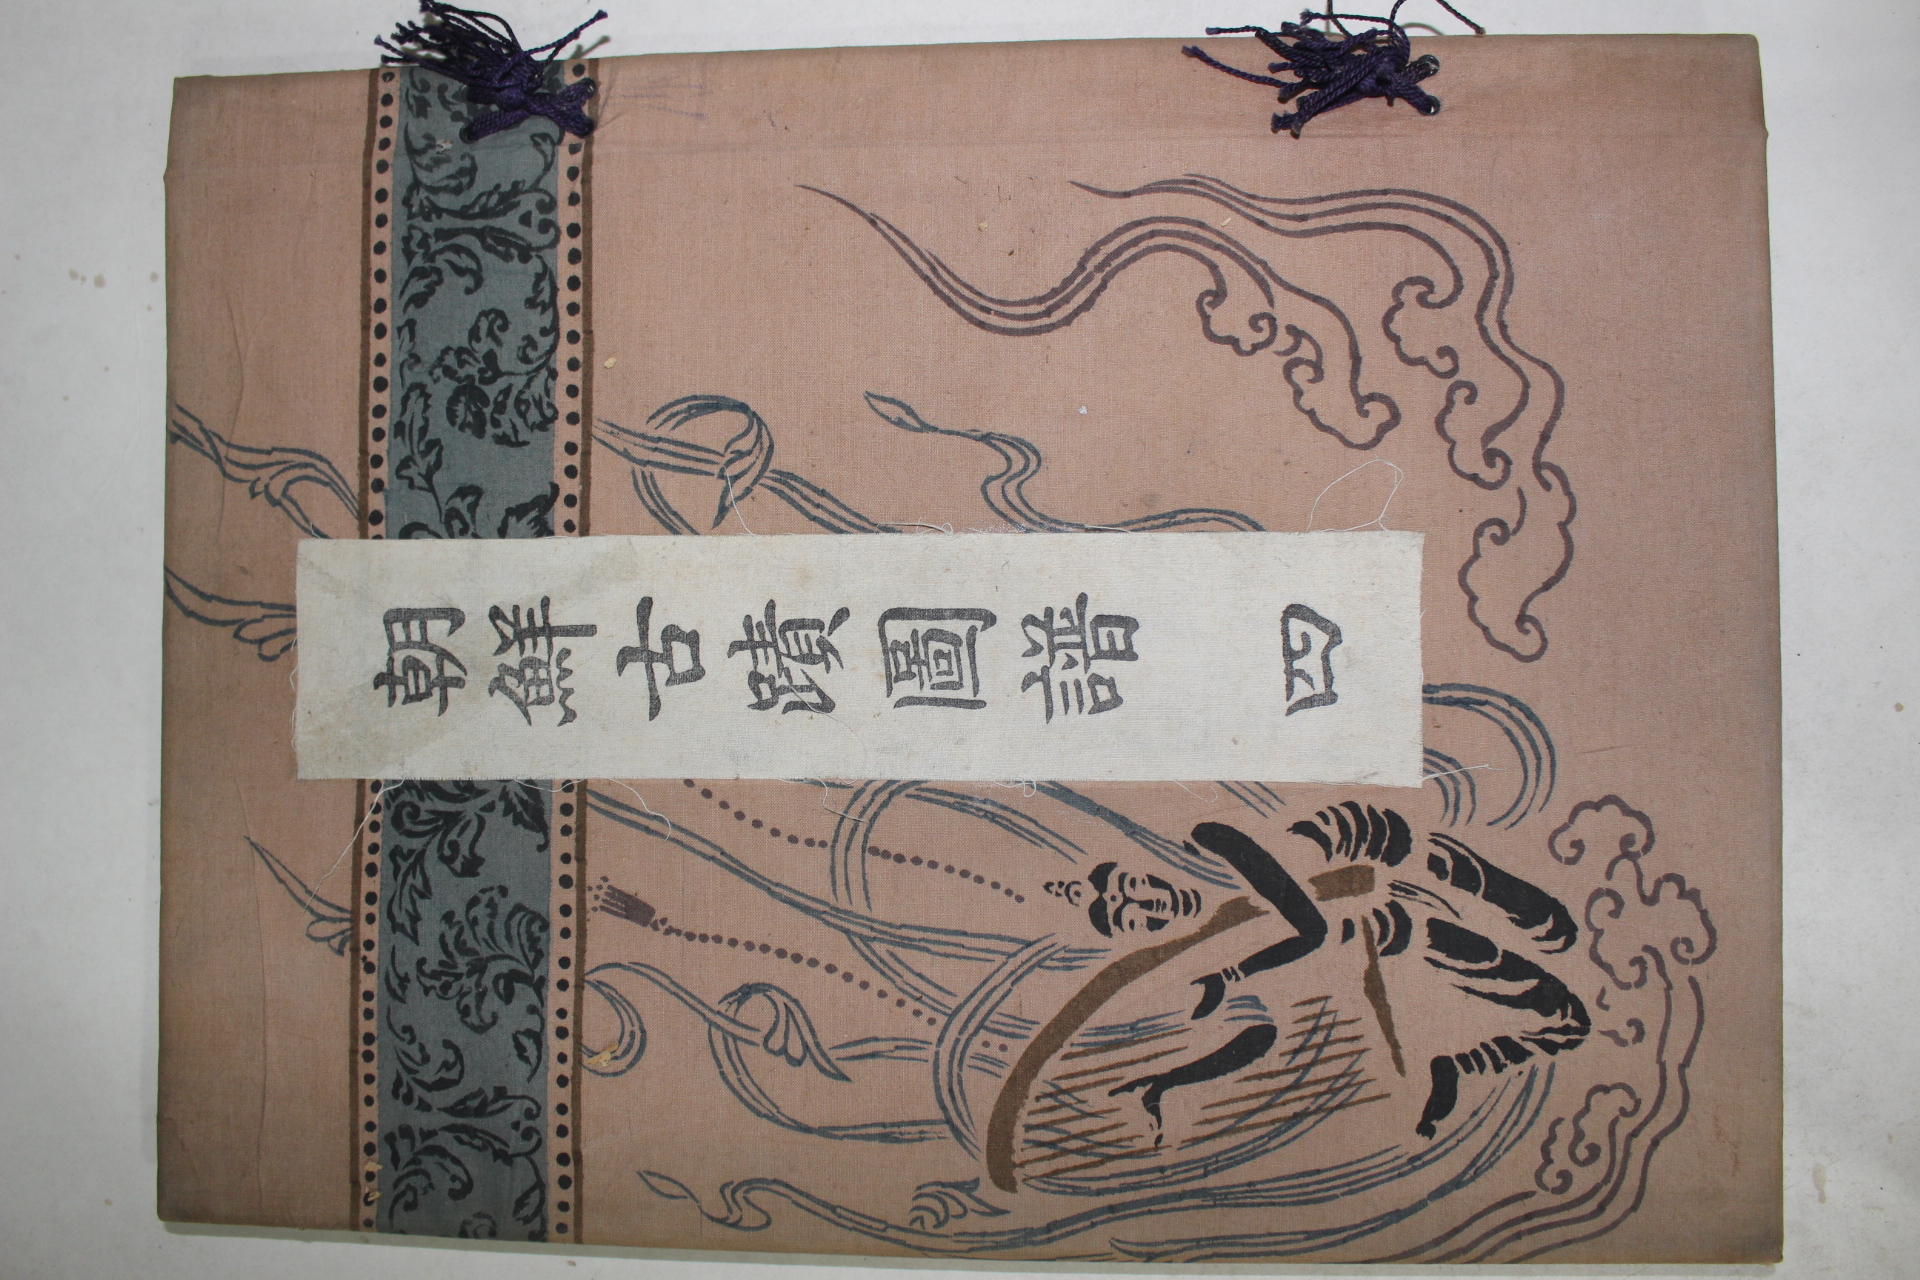 朝鮮古蹟圖譜 四